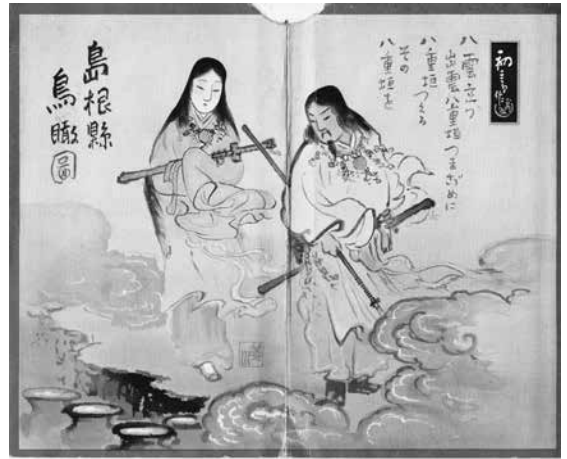 八雲立つ
出雲八重垣つまごめに
八重垣つくる
その
八重垣を
島根縣
鳥瞰
圖